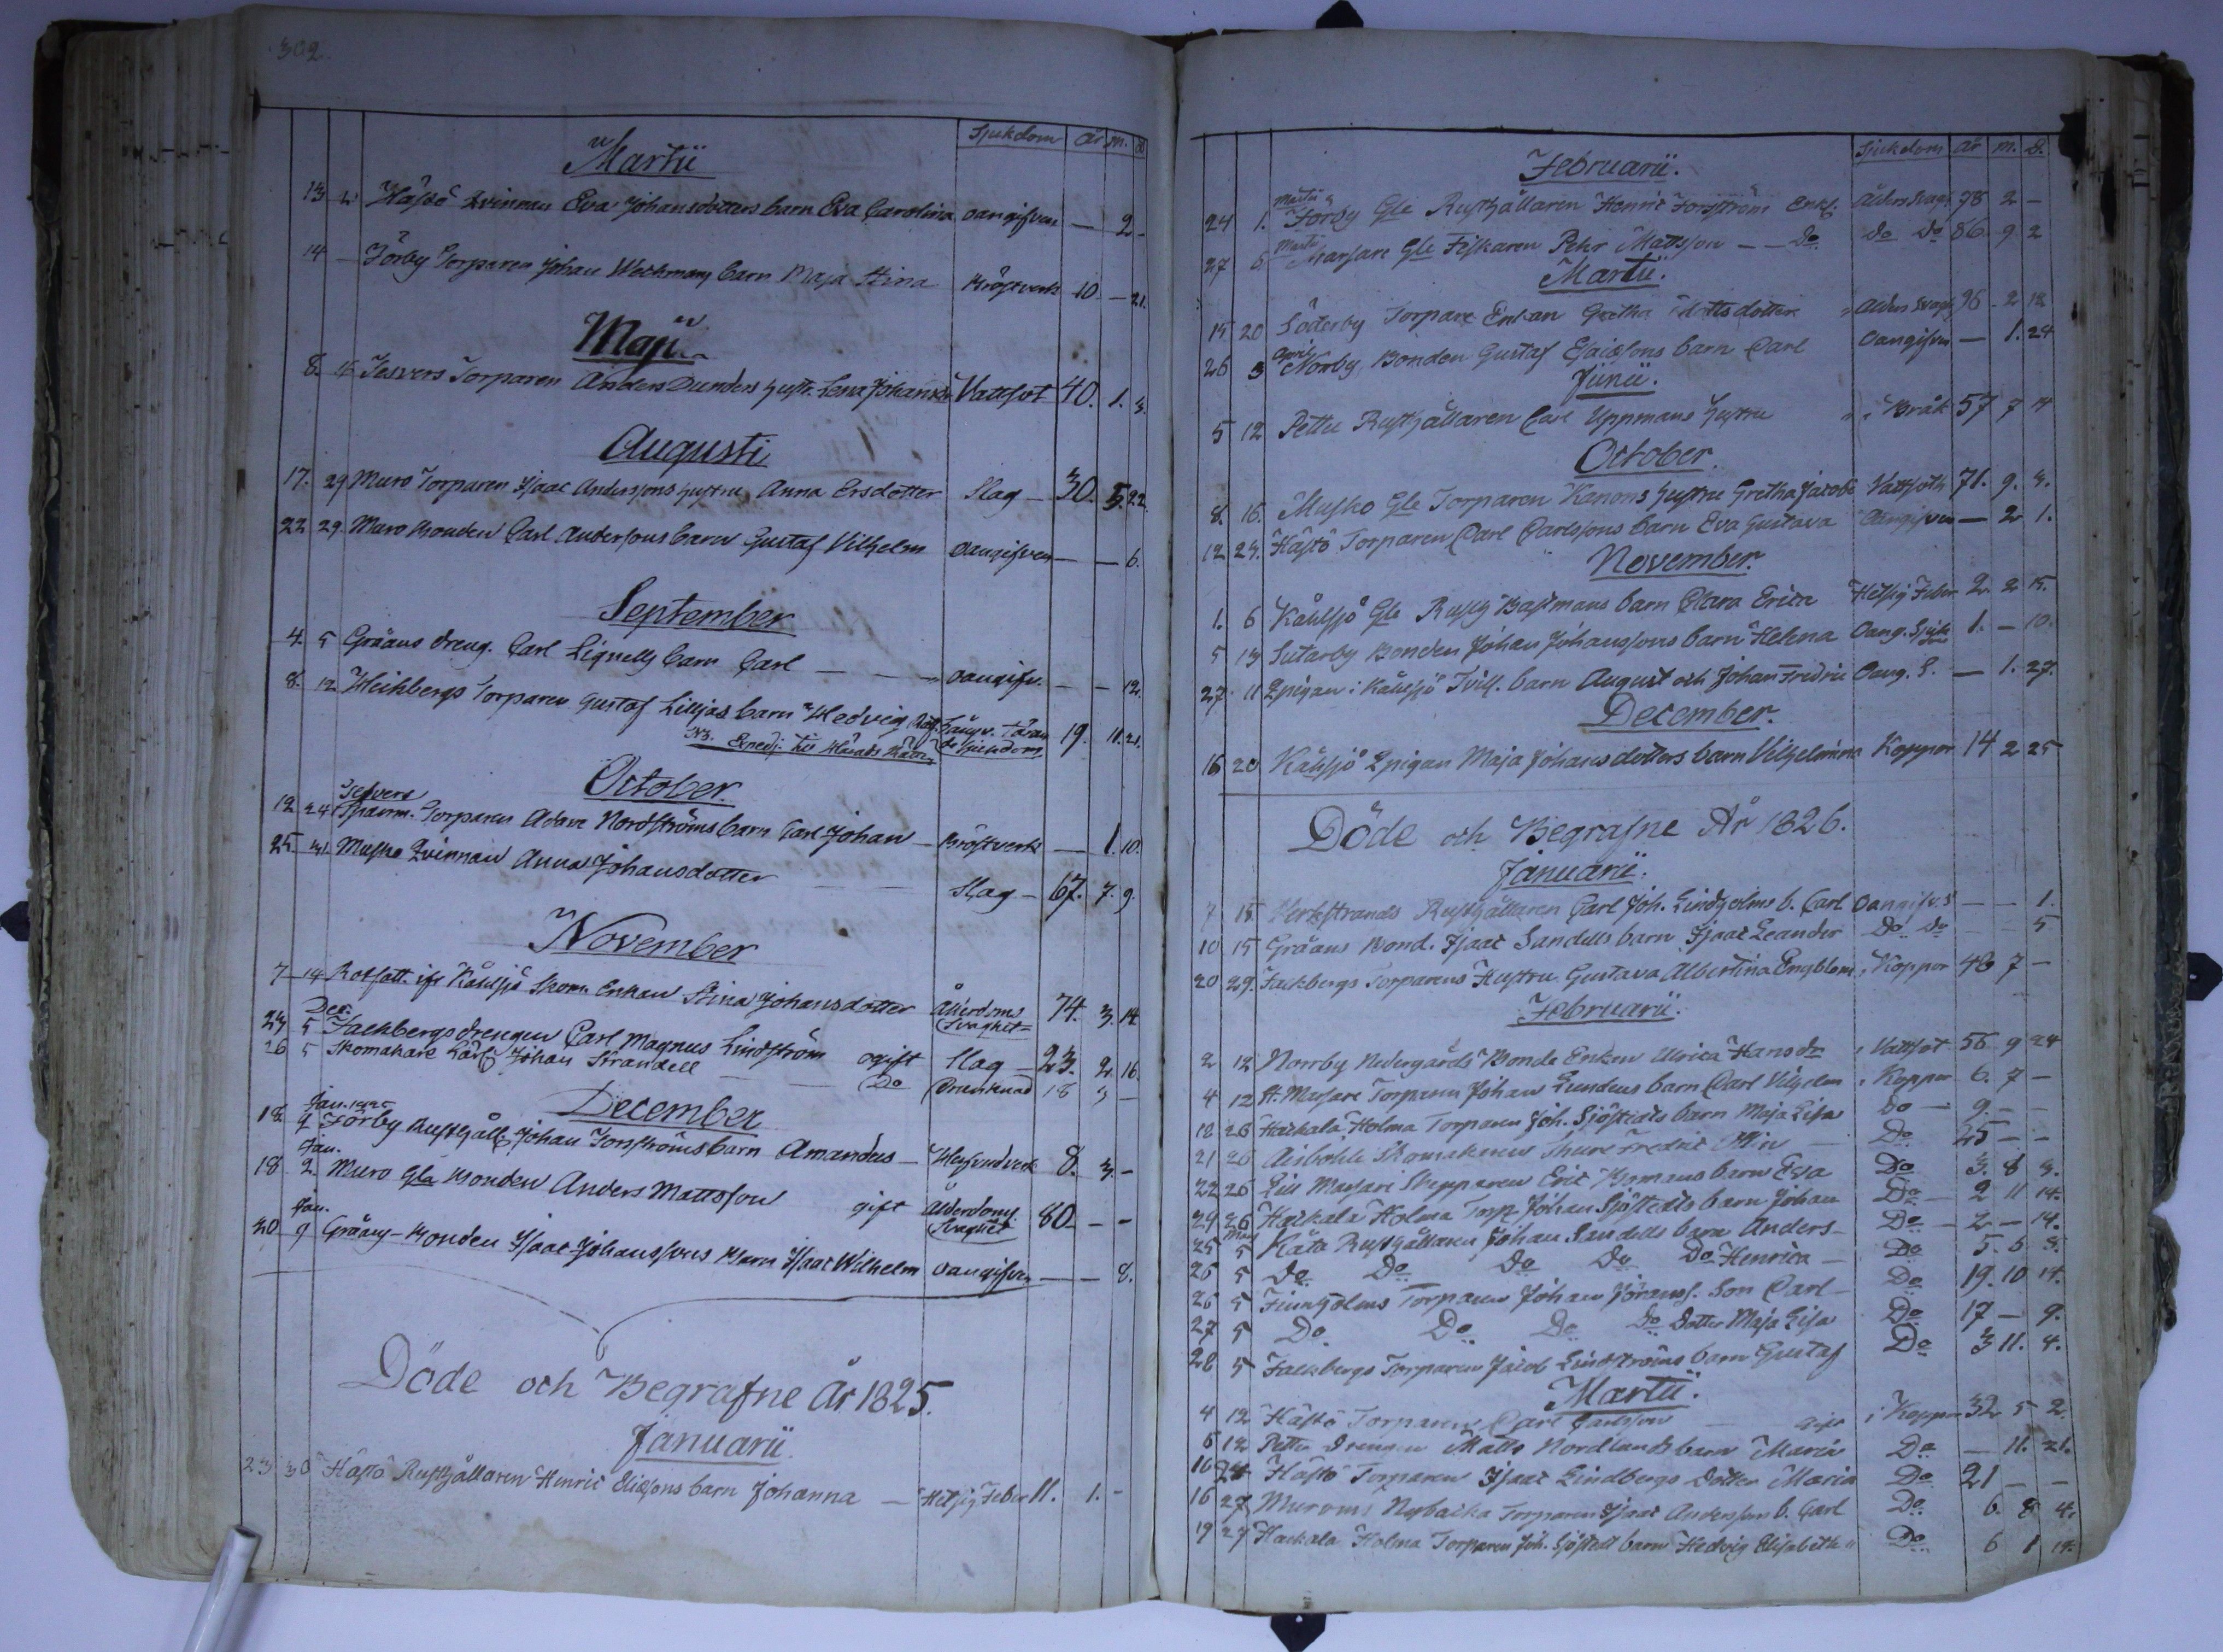 302.
Sjukdom År m. d
Martii
13 21 Hästö Qvinnan Eva Johansdotters barn Eva Carolina oangifven — 2 -
14 — Förby Torparen Johan Weckmans barn Maja Stina Bröstverk 10 — 21.
Maji
8. 16 Jesvers Torparen Anders Dunders hustr. Lena Johansdr Vattsot 40. 1. 3.
Augusti
17. 29 Muro Torparen Isaac Anderssons hustru Anna Ersdotter Slag — 30. 5. 22.
22 29. Muro Bonden Carl Anderssons barn Gustaf Vilhelm oangifven — — 6.
September
4. 5 Grääns dreng. Carl Lignells barn Carl — — — oangifv. — — 12.
8. 12 Heikbergs Torparen Gustaf Liljas barn Hedvig Långv. Täran
NB. Exped: till Härads Rätten de Sjukdom 19. 11. 21.
October.
Jesvers
12 24 Sparrm. Torparen Adam Nordströms barn Carl Johan — Bröstverk — 1. 10.
25 31 Musko Qvinnan Anna Johansdotter — — Slag — 67. 7. 9.
November
7 14 Rotfatt. ifr Kåhlsjö Skom. Enkan Stina Johansdotter Ålderdoms Svaghet 74. 3. 14
Dec:
23 5 Falkbergs drengen Carl Magnus Lindström ogift Slag — 23. 2 16.
26 5 Skomakare Lärl. Johan Strandell — — Do Drunknad 18 3 —
December
Jan. 1825
18 9 Förby Rusthåll. Johan Forsströms barn Amandus — Hufvudverk 8. 3. -
Jan.
18 2. Muro Gla Bonden Anders Mattsson gift Ålderdoms Svaghet 80 - -
Jan.
30 9 Grääns — Bonden Isaac Johanssons Barn Isaac Wilhelm oangifven — — 8.
Döde och Begrafne År 1825.
Januarii
23 30 Hästö Rusthållaren Henric Eliæsons barn Johanna — Hetsig Feber 11. 1. -
Sjukdom år m. d.
Februarii.
Martii
24 1. Förby Gle Rusthållaren Henric Forsström Enkl. Ålders Svagh 78 2 —
Marti
27 6. Marsare Gle Fiskaren Pehr Mattsson — — Do. Do Do 86. 9 2
Martii.
15 20 Söderby Torpare Enkan Gretha Mattsdotter Ålders Svagh 76 2 18
April
26 3 Norrby Bonden Gustaf Esaiæsons barn Carl Oangifven — 1. 24
Junii.
5 12 Pettu Rusthållaren Carl Uppmans hustru Bråk 57 7 14
October.
8. 16. Musko Gle Torparen Kanons hustru Gretha Jacobs Vattsoth 71. 9. 3.
12 23. Hästö Torparen Carl Carlssons barn Eva Gustava Oangifven — 2 1.
November.
1. 6 Kåhlsjö Gle Rusth Bastmans barn Clara Erica Hetsig Feber 2. 2 15.
5 13 Lutarby Bonden Johan Johanssons barn Helena Oang. Sjuk 1. — 10.
27 11 Qpigan i Kåhlsjö Tvill. barn August och Johan Fredric Oang. S. — 1. 27.
December.
16 20 Kåhlsjö Qpigan Maja Johansdotters barn Vilhelmina Koppor 14 2 25
Döde och Begrafne År 1826.
Januarii.
7 15 Verkstrands Rusthållaren Carl Joh. Lindholms b. Carl Oangifv. S — — 1.
10 15 Grääns Bond. Isaac Sandells barn Isaac Leander Do Do — — 5
20 29. Falkbergs Torparens Hustru Gustava Albertina Engblom Koppor 43 7 —
Februarii.
2 12 Norrby Nedergårds Bonde Enkan Ulrica Hansdr Vattsot 56 9 24
4 12 St. Marsare Torparen Johan Lundens barn Carl Vilhelm Koppor 6. 7 —
12 26 Haikala Holma Torparen Joh. Sjöstedts barn Maja Lisa Do — 9. — —
21 26 Aisböhle Skomakaren Thure Fredric — Do 25 — —
22 26 Lill Marsare Skepparen Eric Bomans barn Eva Do 3. 8 3.
24 26 Haikala Holma Torp. Johan Sjöstedts barn Johan Do — 2 11 14.
Mars
25 5 Kåta Rusthållaren Johan Sandells barn Anders — Do — 2 — 14.
25 5 Do Do Do Do Do Henrica — Do 5. 6 3.
26 5 Finnholms Torparen Johan Göranss. Son Carl — Do 19. 10 14.
27 5 Do Do Do Do Dotter Maja Lisa Do 17 — 9.
28 5 Falkbergs Torparen Jacob Lindströms barn Gustaf Do 3 11. 4.
Martii.
4 12 Hästö Torparen Carl Carlsson — gift Koppor 32 5 2.
6 12 Pettu Drengen Matts Nordlunds barn Maria Do — 11. 21.
10 24 Hästö Torparen Isaac Lindbergs Dotter Maria Do 21 — —
16 27 Murons Nybacka Torparen Isaac Anderssons b. Carl Do 6. 8 4.
19 27 Haikala Holma Torparen Joh. Sjöstedt barn Hedvig Elisabeth Do 6 1 14.